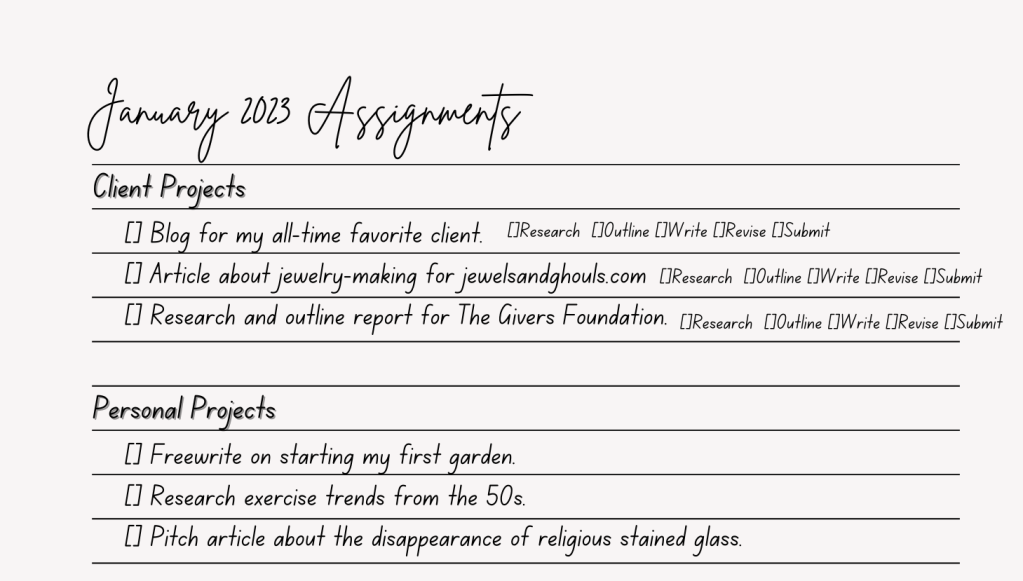 January 2023 Assignments
Client Projects
[] Blog for my all-time favorite client. []Research []Outline []Write []Revise []Submit
[] Article about jewelry-making for jewelsandghouls.com []Research []Outline []Write []Revise []Submit
[] Research and outline report for The Givers Foundation. []Research []Outline []Write []Revise []Submit
Personal Projects
[] Freewrite on starting my first garden.
[] Research exercise trends from the 50s.
[] Pitch article about the disappearance of religious stained glass.